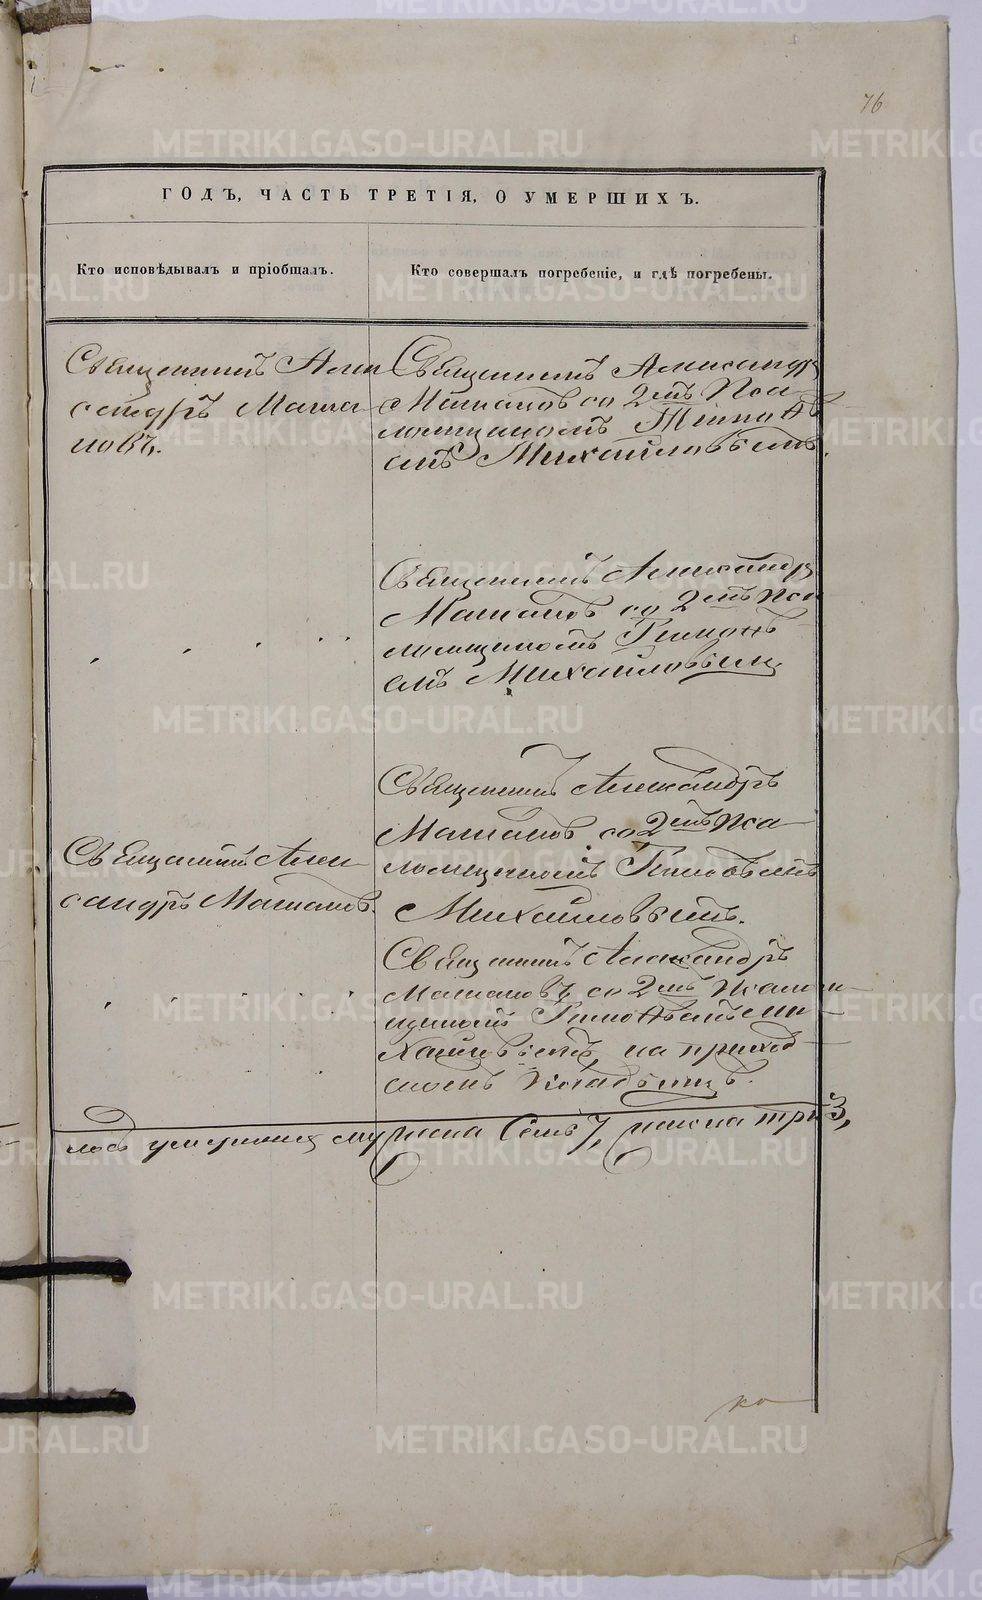 76
ГОДЪ, ЧАСТЬ ТРЕТІЯ, О УМЕРШИХЪ.
Кто исповѣдывалъ и пріобщалъ.
Кто совершалъ погребеніе, и гдѣ погребены.
Священникъ Алек
сандръ Мата
новъ.
Священникъ Александръ
Матановъ со 2мъ Пса
ломщикомъ
Михайловымъ.
Священникъ Александръ
Матановъ со 2мъ Пса
ломщикомъ
Михайловымъ
Священникъ Алек
сандръ Матановъ.
Священникъ Александръ
Матановъ со 2мъ Пса
ломщикомъ
Михайловымъ.
Священникъ Александръ
Матановъ со 2мъ Псалом
щикомъ Ми
хайловымъ, на приход
скомъ кладбищѣ.
умершихъ муж пола семь 7, жен пола три 3,
METRIKI.GASO-URAL.RU